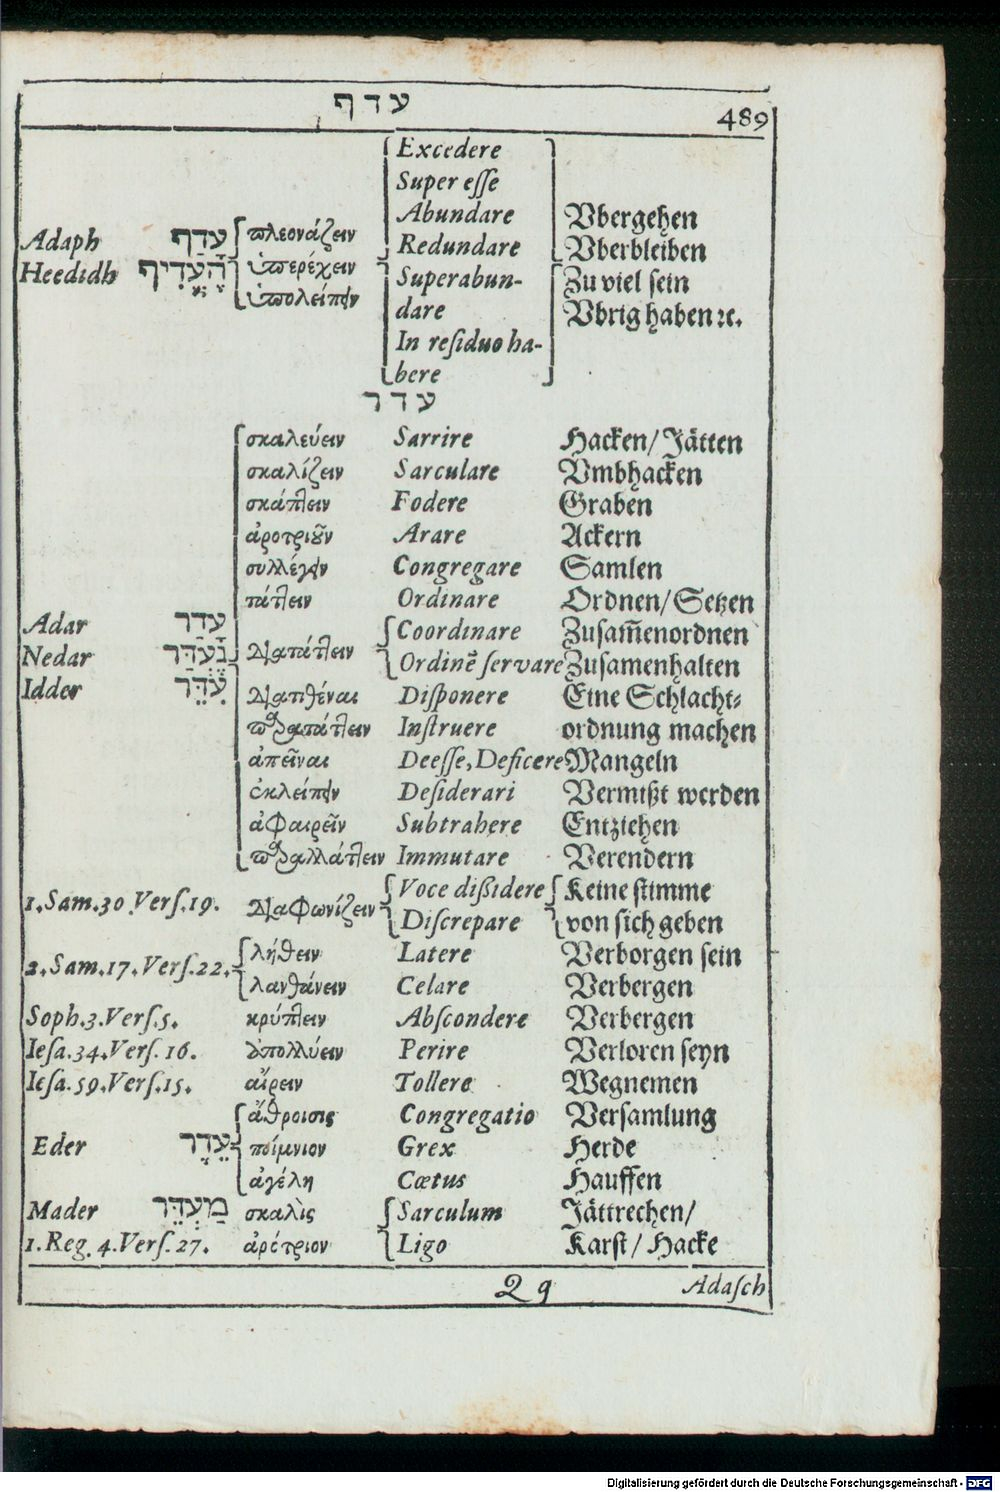 עדף 489
Excedere
Super eſſe
Abundare Vbergehen
Adaph עָדַף πλεονάζειν Redundare Vberbleiben
Heedidh הֶעֱדִיף ὑπερέχειν Superabun- Zu viel sein
ὑπολείπειν dare Vbrig haben ꝛc.
In reſiduo ha-
bere
עדר
σκαλεύειν Sarrire Hacken/Jätten
σκαλίζειν Sarculare Vmbhacken
σκάπτειν Fodere Graben
ἀροτριοῦν Arare Ackern
συλλέγειν Congregare Samlen
τάττειν Ordinare Ordnen/Setzen
Adar עָדַר Coordinare Zusam̃enordnen
Nedar נֶעְדַּר διατάττειν Ordinẽ ſervare Zusamenhalten
Idder עִדֵּר διατιθέναι Diſponere Eine Schlacht⸗
παρατάττειν Inſtruere ordnung machen
ἀπεῖναι Deeſſe, Deficere Mangeln
ἐκλείπειν Deſiderari Vermißt werden
ἀφαιρεῖν Subtrahere Entziehen
παραλλάττειν Immutare Verendern
1. Sam. 30. Verſ. 19. διαφωνίζειν Voce dißidere Keine stimme
Diſcrepare von sich geben
2. Sam. 17. Verſ. 22. λήθειν Latere Verborgen sein
λανθάνειν Celare Verbergen
Soph. 3. Verſ. 5. κρύπτειν Abſcondere Verbergen
Ieſa. 34. Verſ. 16. ἀπολλύειν Perire Verloren seyn
Ieſa. 59. Verſ. 15. αἴρειν Tollere Wegnemen
ἄθροισις Congregatio Versamlung
Eder עֵדֶר ποίμνιον Grex Herde
ἀγέλη Cœtus Hauffen
Mader מַעְדֵּר σκαλὶς Sarculum Jättrechen/
1. Reg. 4. Verſ. 27. ἀρότριον Ligo Karst/ Hacke
Q q Adaſch
Digitalisierung gefördert durch die Deutsche Forschungsgemeinschaft - DFG